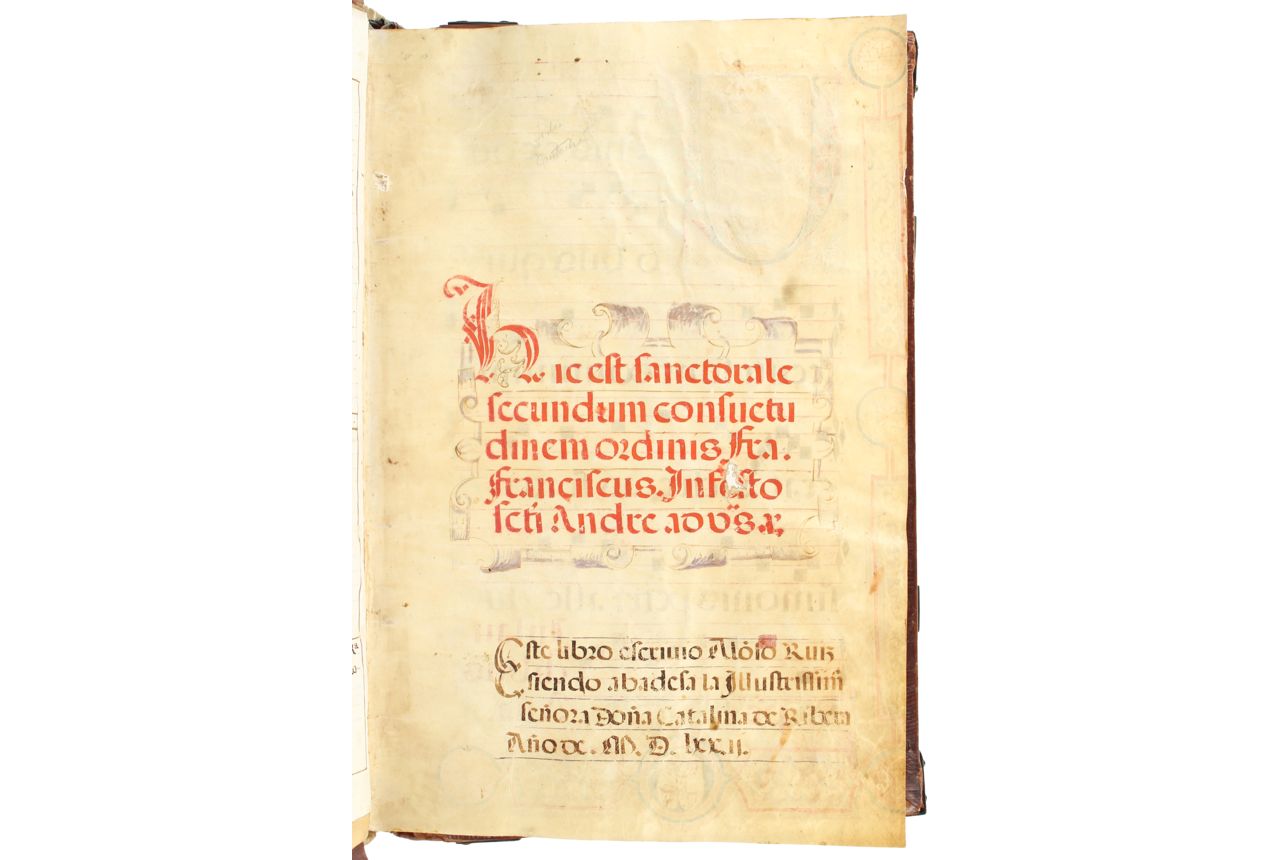 Hic est sanctorale
secundum consuetu
dinem ordinis Fra.
Franciscus. In festo
scti Andre ad vs̃s. a;
Este libro escriuio Alõso Ruiz
siendo abadesa la Illustrissim̃
señora Doña Catalina de Ribera
Año de. M. D. lxxij.